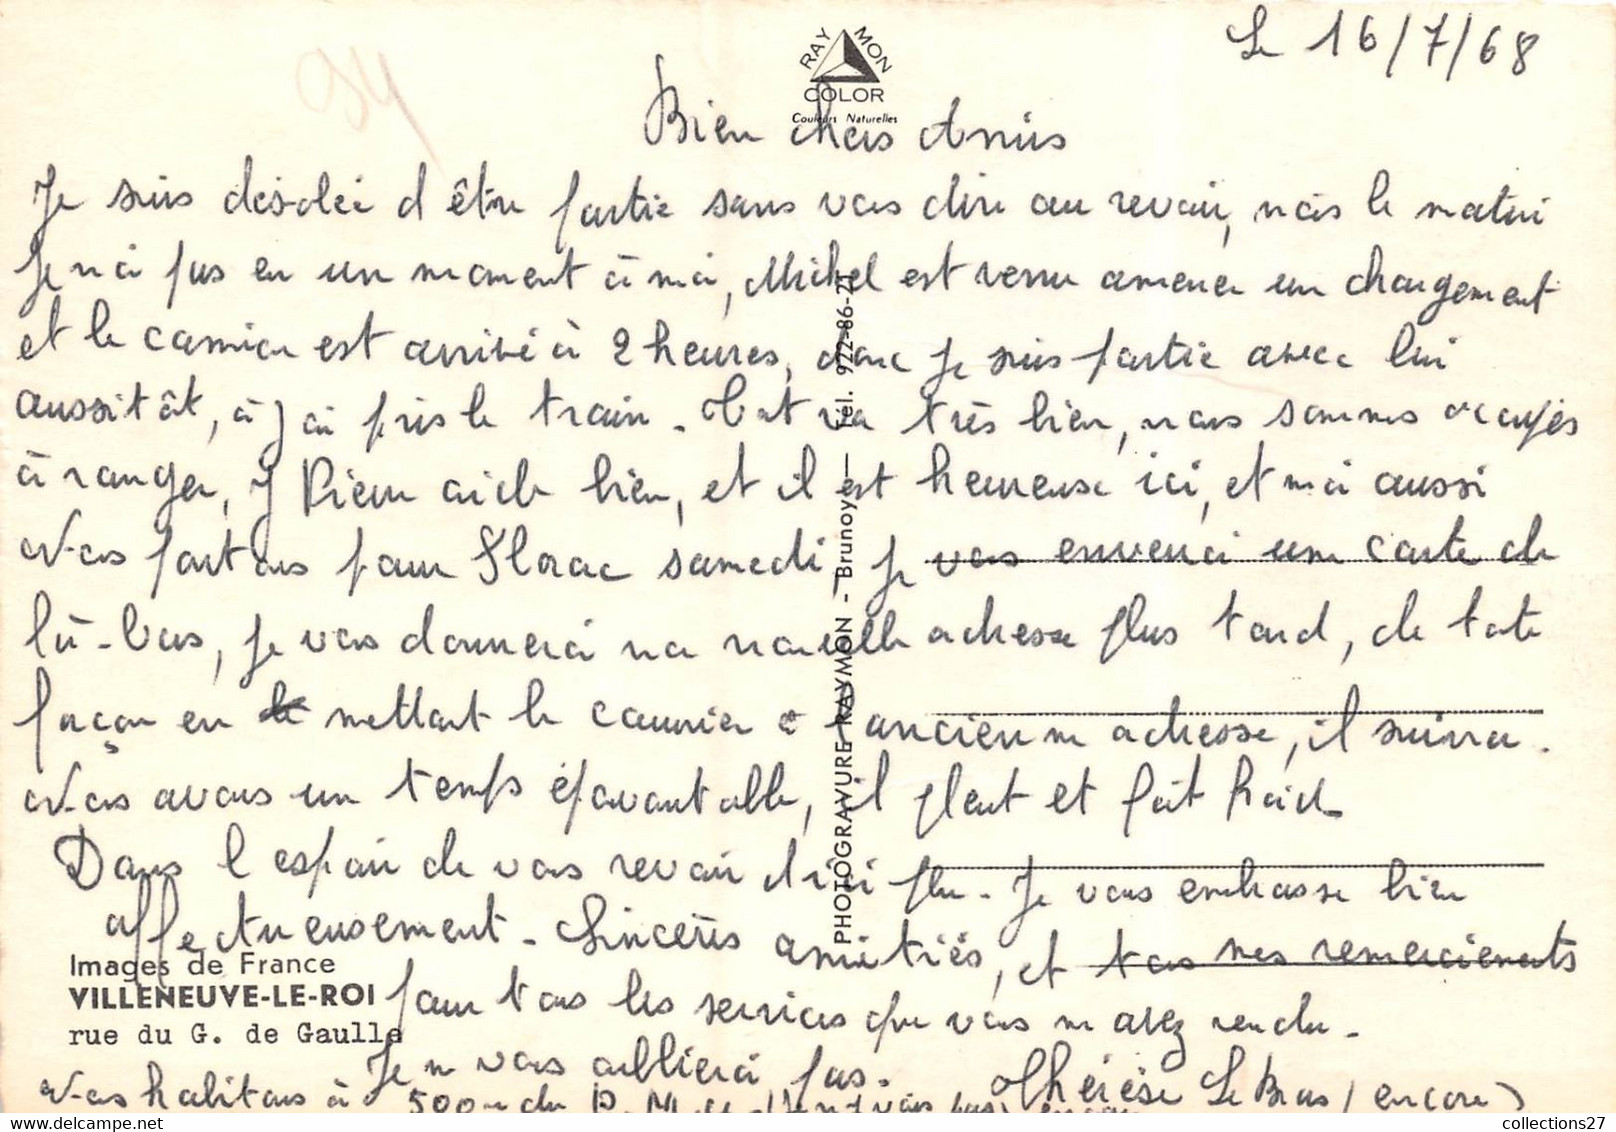 Le 16/7/68
94
RAYMON
COLOR
Couleurs Naturelles
Bien chers Amis
Je suis désolée d'être partie sans vous dire au revoir, mais le matin
je n'ai pas eu un moment à moi, Michel est venu amener un chargement
et le camion est arrivé à 2 heures, donc je suis partie avec lui
aussitôt, à j'ai pris le train. Tout va très bien, nous sommes occupés
à ranger, J Pierre aide bien, et il est heureuse ici, et moi aussi
Nous partons pour Florac samedi je vous enverrai une carte de
là-bas, je vous donnerai ma nouvelle adresse plus tard, de toute
façon en mettant le courrier à l'ancienne adresse, il suivra.
Nous avons un temps épouvantable, il pleut et fait froid
Dans l'espoir de vous revoir d'ici peu. Je vous embrasse bien
affectueusement. Sincères amitiés, et tous mes remerciements
pour tous les services que vous m'avez rendu.
Je ne vous oublierai pas.
Thérèse Le Bras (encore)
Nous habitons à 500m du
Images de France
VILLENEUVE-LE-ROI
rue du G. de Gaulle
PHOTOGRAVURE RAYMON - Brunoy - Tél. 922-86-21
collections27